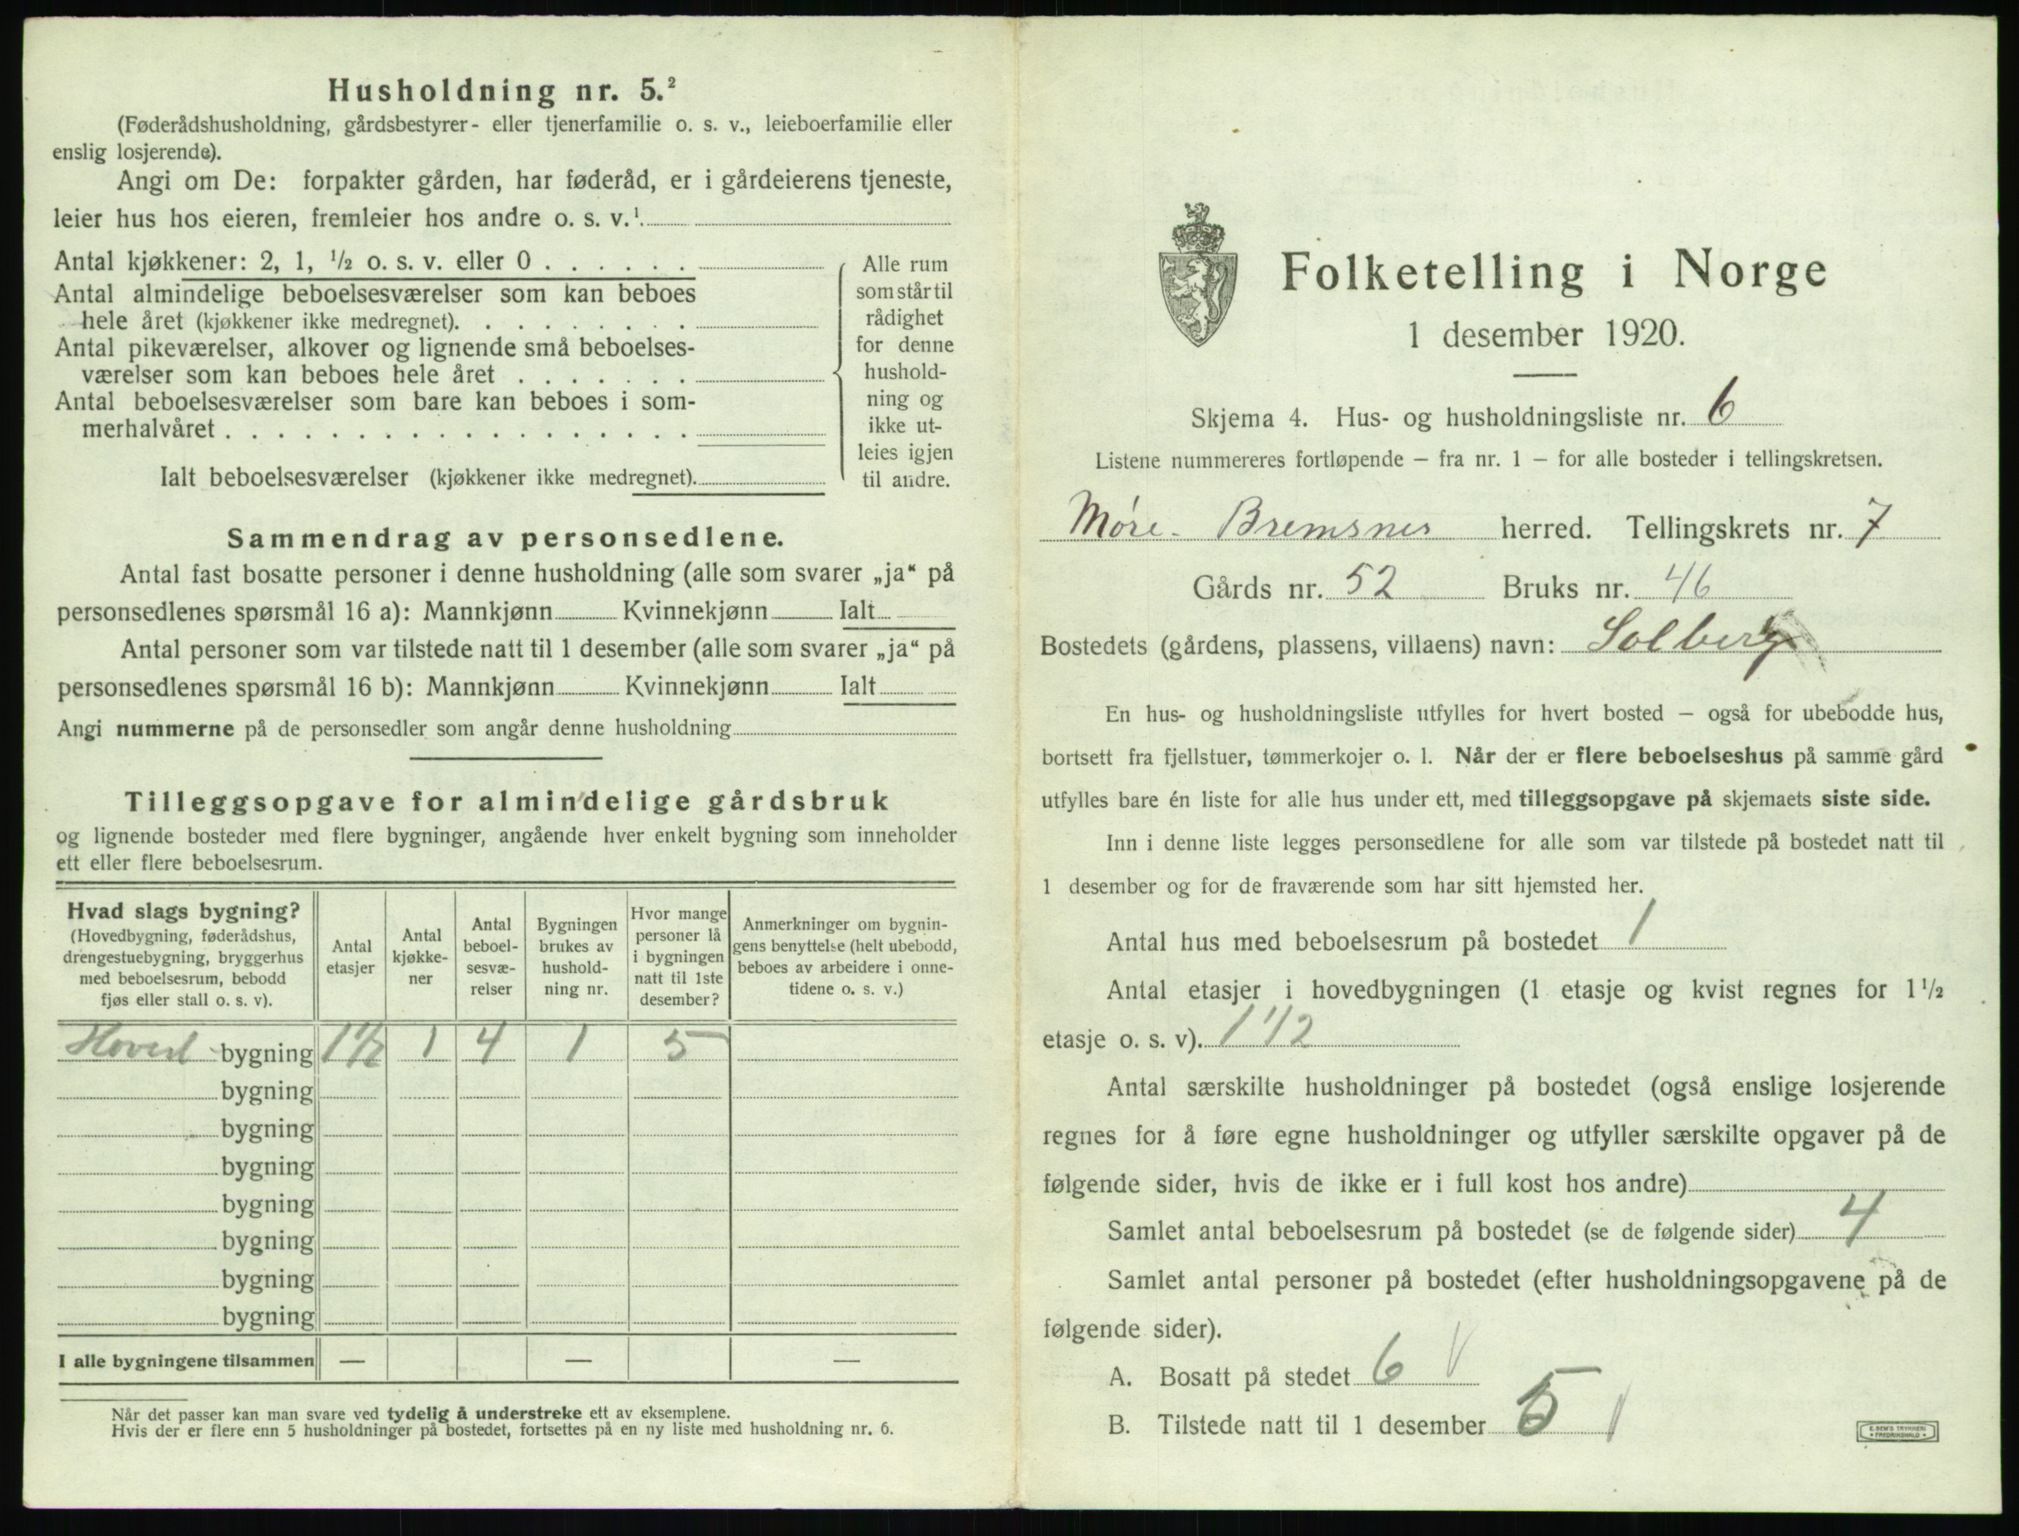 Husholdning nr. 5.²
(Føderådshusholdning, gårdsbestyrer- eller tjenerfamilie o. s. v., leieboerfamilie eller
enslig losjerende).
Angi om De: forpakter gården, har føderåd, er i gårdeierens tjeneste,
leier hus hos eieren, fremleier hos andre o. s. v.¹
Antal kjøkkener: 2, 1, ½ o. s. v. eller 0 . . . . . .
Antal almindelige beboelsesværelser som kan beboes
hele året (kjøkkener ikke medregnet). . . . . . . . .
Antal pikeværelser, alkover og lignende små beboelses-
værelser som kan beboes hele året . . . . . . .
Antal beboelsesværelser som bare kan beboes i som-
merhalvåret . . . . . . . . . . . . . . . . . .
Ialt beboelsesværelser (kjøkkener ikke medregnet).
Alle rum
som står til
rådighet
for denne
hushold-
ning og
ikke ut-
leies igjen
til andre.
Sammendrag av personsedlene.
Antal fast bosatte personer i denne husholdning (alle som svarer „ja“ på
personsedlenes spørsmål 16 a): Mannkjønn Kvinnekjønn Ialt
Antal personer som var tilstede natt til 1 desember (alle som svarer „ja“ på
personsedlenes spørsmål 16 b): Mannkjønn Kvinnekjønn Ialt
Angi nummerne på de personsedler som angår denne husholdning
Tilleggsopgave for almindelige gårdsbruk
og lignende bosteder med flere bygninger, angående hver enkelt bygning som inneholder
ett eller flere beboelsesrum.
Hvad slags bygning?
(Hovedbygning, føderådshus,
drengestuebygning, bryggerhus
med beboelsesrum, bebodd
fjøs eller stall o. s. v).
Antal
etasjer
Antal
kjøkke-
ner
Antal
beboel-
sesvæ-
relser
Bygningen
brukes av
hushold-
ning nr.
Hvor mange
personer lå
i bygningen
natt til 1ste
desember?
Anmerkninger om bygnin-
gens benyttelse (helt ubebodd,
beboes av arbeidere i onne-
tidene o. s. v.)
Hoved bygning 1 1/2 1 4 1 5
bygning
bygning
bygning
bygning
bygning
bygning
bygning
I alle bygningene tilsammen — — —
Når det passer kan man svare ved tydelig å understreke ett av eksemplene.
Hvis der er flere enn 5 husholdninger på bostedet, fortsettes på en ny liste med husholdning nr. 6.
Folketelling i Norge
1 desember 1920.
Skjema 4. Hus- og husholdningsliste nr. 6
Listene nummereres fortløpende – fra nr. 1 – for alle bosteder i tellingskretsen.
Møre. Bremsnes herred. Tellingskrets nr. 7
Gårds nr. 52 Bruks nr. 46
Bostedets (gårdens, plassens, villaens) navn: Solberg
En hus- og husholdningsliste utfylles for hvert bosted – også for ubebodde hus,
bortsett fra fjellstuer, tømmerkojer o. l. Når der er flere beboelseshus på samme gård
utfylles bare én liste for alle hus under ett, med tilleggsopgave på skjemaets siste side.
Inn i denne liste legges personsedlene for alle som var tilstede på bostedet natt til
1 desember og for de fraværende som har sitt hjemsted her.
Antal hus med beboelsesrum på bostedet 1
Antal etasjer i hovedbygningen (1 etasje og kvist regnes for 1½
etasje o. s. v). 1 1/2
Antal særskilte husholdninger på bostedet (også enslige losjerende
regnes for å føre egne husholdninger og utfyller særskilte opgaver på de
følgende sider, hvis de ikke er i full kost hos andre)
Samlet antal beboelsesrum på bostedet (se de følgende sider) 4
Samlet antal personer på bostedet (efter husholdningsopgavene på de
følgende sider).
A. Bosatt på stedet 6
B. Tilstede natt til 1 desember 5
E. SEM'S TRYKKERI
FREDRIKSHALD